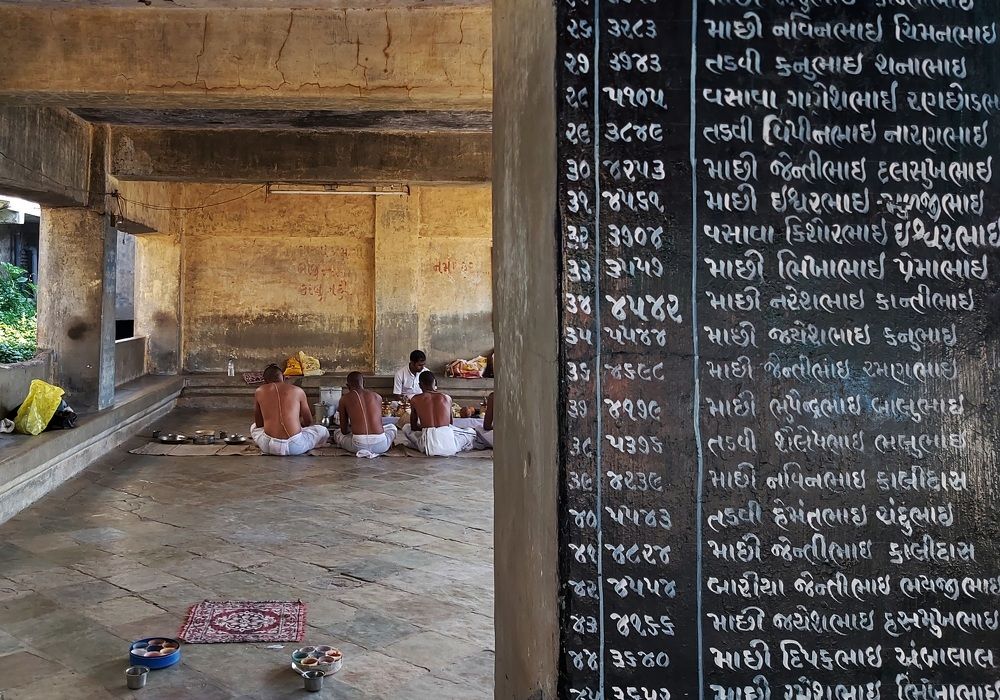 ૨૬ ૩૨૮૩ માછી નવિનભાઇ ચિમનભાઇ
૨૭ ૩૭૪૩ તડવી કનુભાઇ શનાભાઇ
૨૮ ૫૧૦૫ વસાવા ગણેશભાઈ રણછોડભ
૨૯ ૩૮૪૯ તડવી વિપીનભાઇ નારણભાઇ
૩૦ ૪૨૫૩ માછી જેન્તીભાઇ દલસુખભાઇ
૩૧ ૪૫૬૧ માછી ઈશ્વરભાઇ મુળજીભાઇ
૩૨ ૩૭૦૪ વસાવા કિશોરભાઇ ઈશ્વરભાઇ
૩૩ ૩૫૫૭ માછી ભિખાભાઈ પ્રેમાભાઇ
૩૪ ૪૫૪૨ માછી નરેશભાઇ કાન્તીભાઇ
૩૫ ૫૫૪૪ માછી જયેશભાઇ કનુભાઇ
૩૬ ૪૬૯૮ માછી જેન્તીભાઇ રમણભાઇ
૩૭ ૪૧૭૯ માછી ભુપેન્દ્રભાઇ બાલુભાઇ
૩૮ ૫૩૭૬ તડવી શૈલેષભાઇ ભલુભાઇ
૩૯ ૪૨૩૯ માછી નવિનભાઇ કાલીદાસ
૪૦ ૫૫૪૩ તડવી હેમંતભાઇ ચંદુભાઇ
૪૧ ૪૮૨૪ માછી જેન્તીભાઇ કાલીદાસ
૪૨ ૪૫૫૪ બારીયા જેન્તીભાઇ ભયજીભાઇ
૪૩ ૪૧૬૬ માછી જયેશભાઇ હસમુખભાઇ
૪૪ ૩૬૪૦ માછી દિપકભાઇ અંબાલાલ